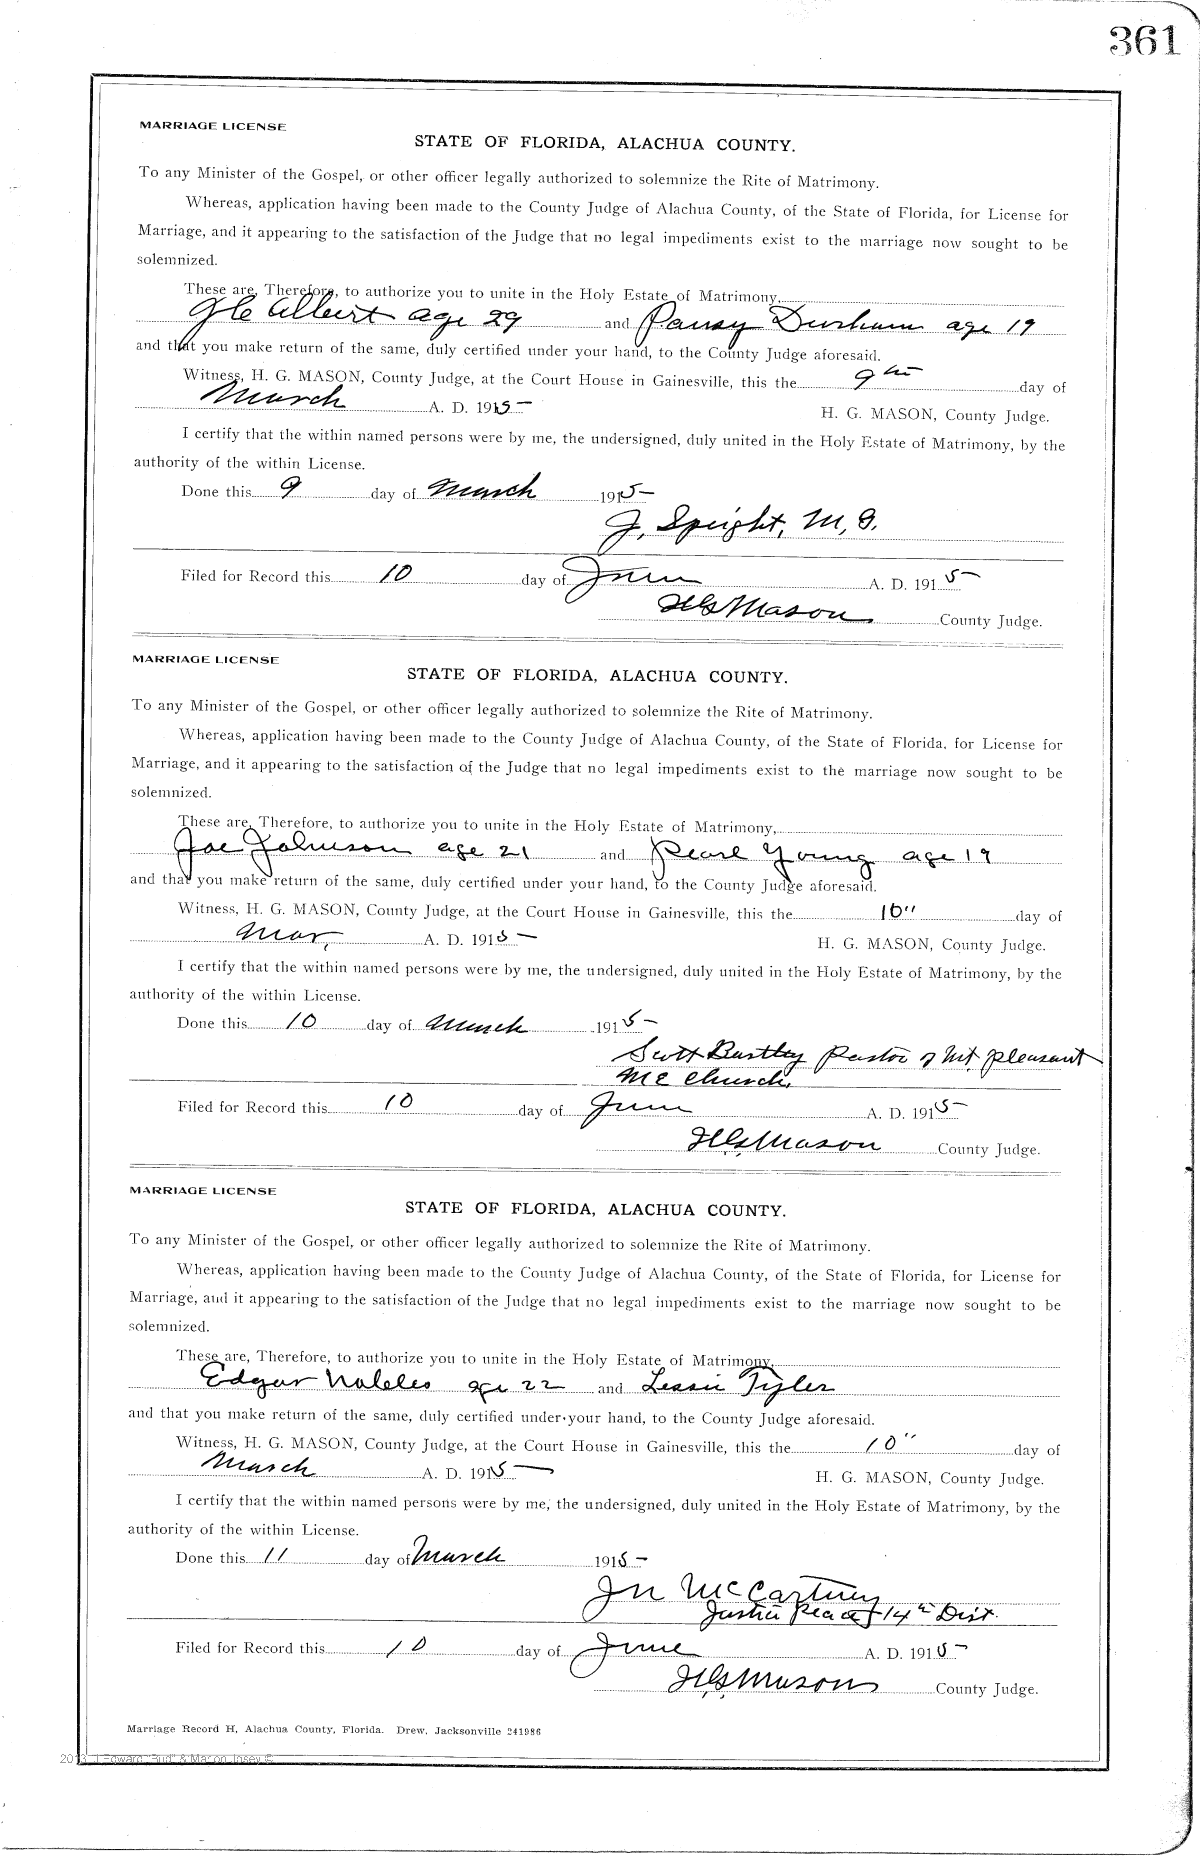 361
MARRIAGE LICENSE
STATE OF FLORIDA, ALACHUA COUNTY.
To any Minister of the Gospel, or other officer legally authorized to solemnize the Rite of Matrimony.
Whereas, application having been made to the County Judge of Alachua County, of the State of Florida, for License for
Marriage, and it appearing to the satisfaction of the Judge that no legal impediments exist to the marriage now sought to be
solemnized.
These are, Therefore, to authorize you to unite in the Holy Estate of Matrimony,
Albert age 29 and Pansy Durham age 19
and that you make return of the same, duly certified under your hand, to the County Judge aforesaid.
Witness, H. G. MASON, County Judge, at the Court House in Gainesville, this the 9th day of
March A. D. 1915 H. G. MASON, County Judge.
I certify that the within named persons were by me, the undersigned, duly united in the Holy Estate of Matrimony, by the
authority of the within License.
Done this 9 day of March 1915
J. Speight, M. G.
Filed for Record this 10 day of June A. D. 1915
H G Mason County Judge.
MARRIAGE LICENSE
STATE OF FLORIDA, ALACHUA COUNTY.
To any Minister of the Gospel, or other officer legally authorized to solemnize the Rite of Matrimony.
Whereas, application having been made to the County Judge of Alachua County, of the State of Florida, for License for
Marriage, and it appearing to the satisfaction of the Judge that no legal impediments exist to the marriage now sought to be
solemnized.
These are, Therefore, to authorize you to unite in the Holy Estate of Matrimony,
Joe Johnson age 21 and Pearl Young age 19
and that you make return of the same, duly certified under your hand, to the County Judge aforesaid.
Witness, H. G. MASON, County Judge, at the Court House in Gainesville, this the 10" day of
Mar, A. D. 1915 H. G. MASON, County Judge.
I certify that the within named persons were by me, the undersigned, duly united in the Holy Estate of Matrimony, by the
authority of the within License.
Done this 10 day of March 1915
Scott Bartley Pastor of Mt. Pleasant
M E Church.
Filed for Record this 10 day of June A. D. 1915
H. G. Mason County Judge.
MARRIAGE LICENSE
STATE OF FLORIDA, ALACHUA COUNTY.
To any Minister of the Gospel, or other officer legally authorized to solemnize the Rite of Matrimony.
Whereas, application having been made to the County Judge of Alachua County, of the State of Florida, for License for
Marriage, and it appearing to the satisfaction of the Judge that no legal impediments exist to the marriage now sought to be
solemnized.
These are, Therefore, to authorize you to unite in the Holy Estate of Matrimony,
Edgar age 22 and Lessie Tyler
and that you make return of the same, duly certified under your hand, to the County Judge aforesaid.
Witness, H. G. MASON, County Judge, at the Court House in Gainesville, this the 10" day of
March A. D. 1915 H. G. MASON, County Judge.
I certify that the within named persons were by me, the undersigned, duly united in the Holy Estate of Matrimony, by the
authority of the within License.
Done this 11 day of March 1915
McCartney
Justice Peace 14th Dist.
Filed for Record this 10 day of June A. D. 1915
H. G. Mason County Judge.
Marriage Record H, Alachua County, Florida. Drew, Jacksonville 241986